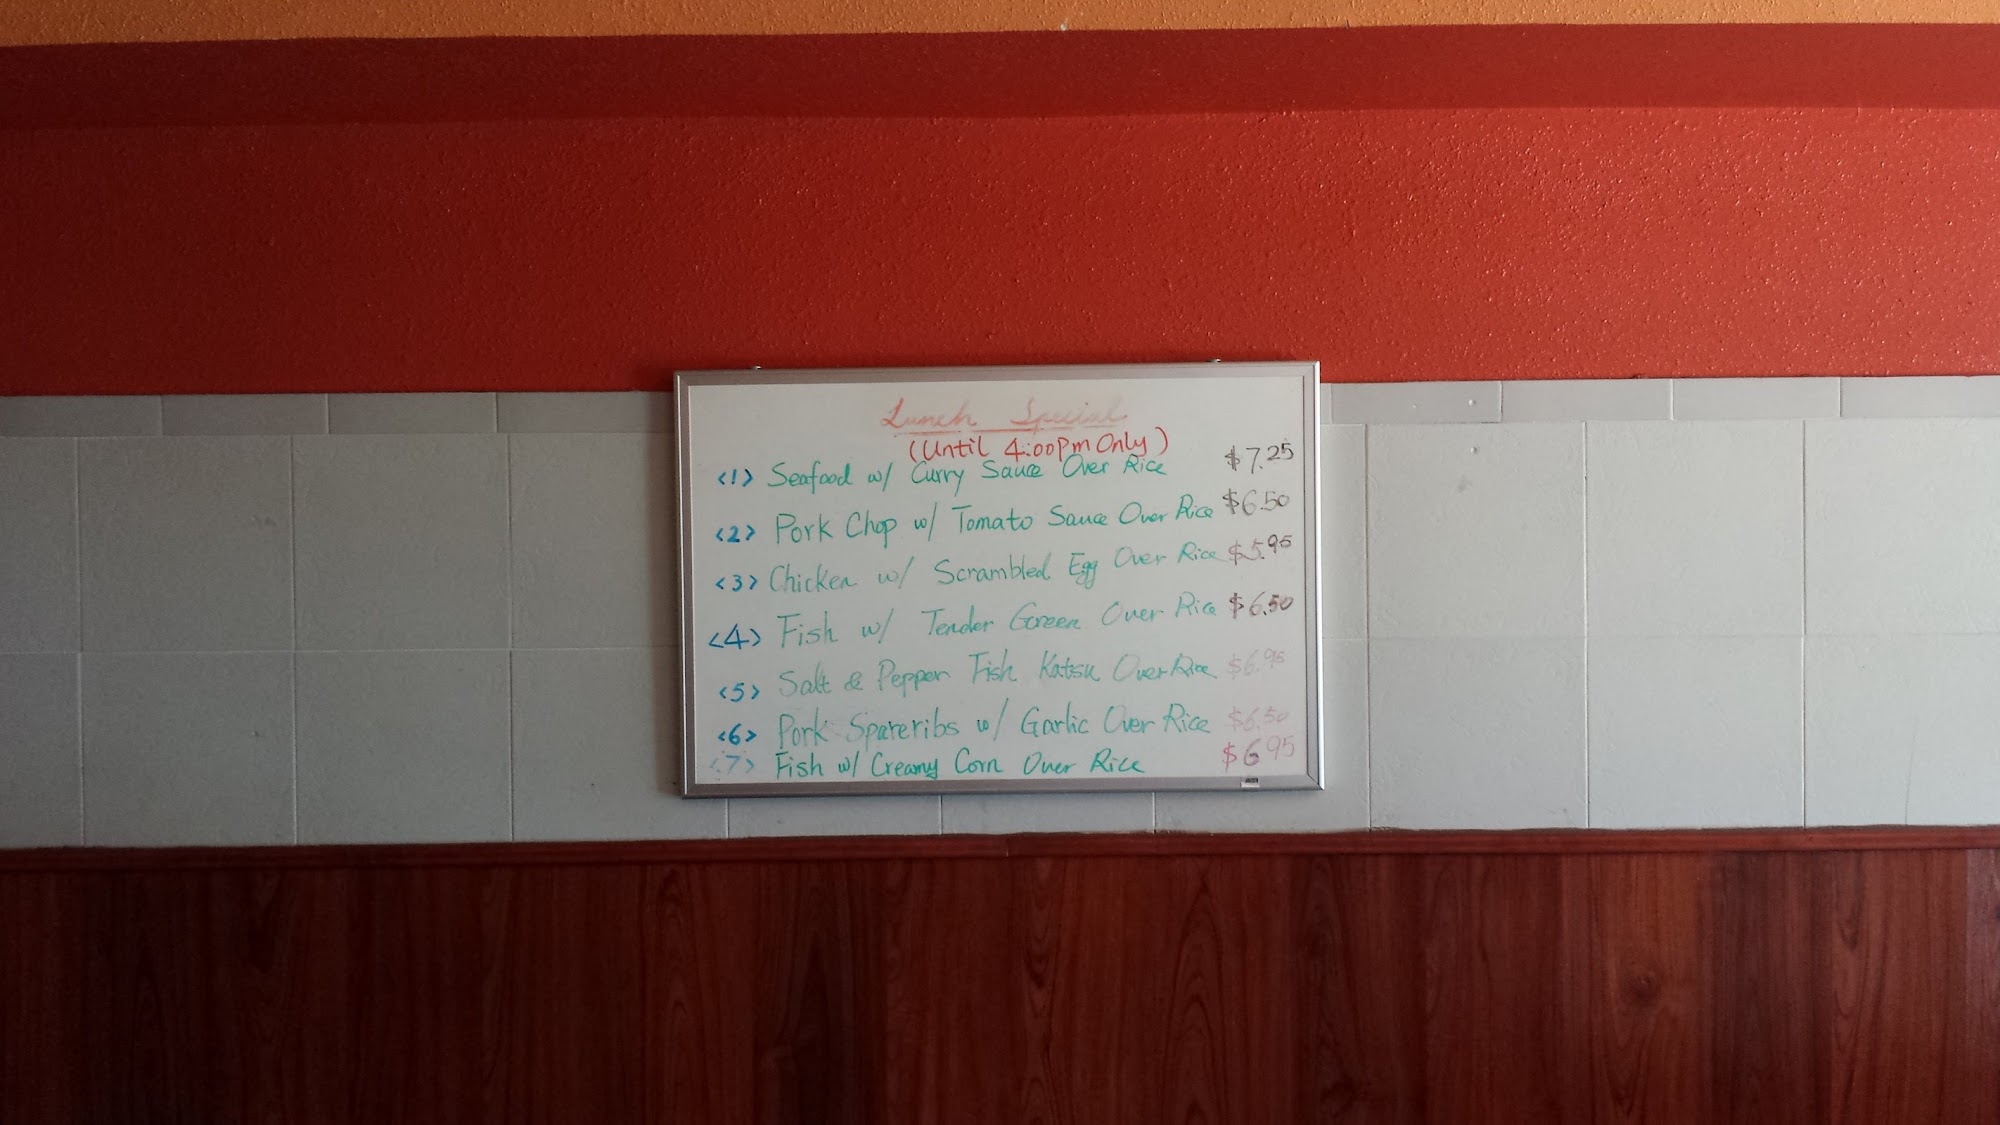 Lunch Special
(Until 4:00pm Only)
<1> Seafood w/ Curry Sauce Over Rice $7.25
<2> Pork Chop w/ Tomato Sauce Over Rice $6.50
<3> Chicken w/ Scrambled Egg Over Rice $5.95
<4> Fish w/ Tender Green Over Rice $6.50
<5> Salt & Pepper Fish Katsu Over Rice $6.95
<6> Pork Spareribs w/ Garlic Over Rice $6.50
<7> Fish w/ Creamy Corn Over Rice $6.95